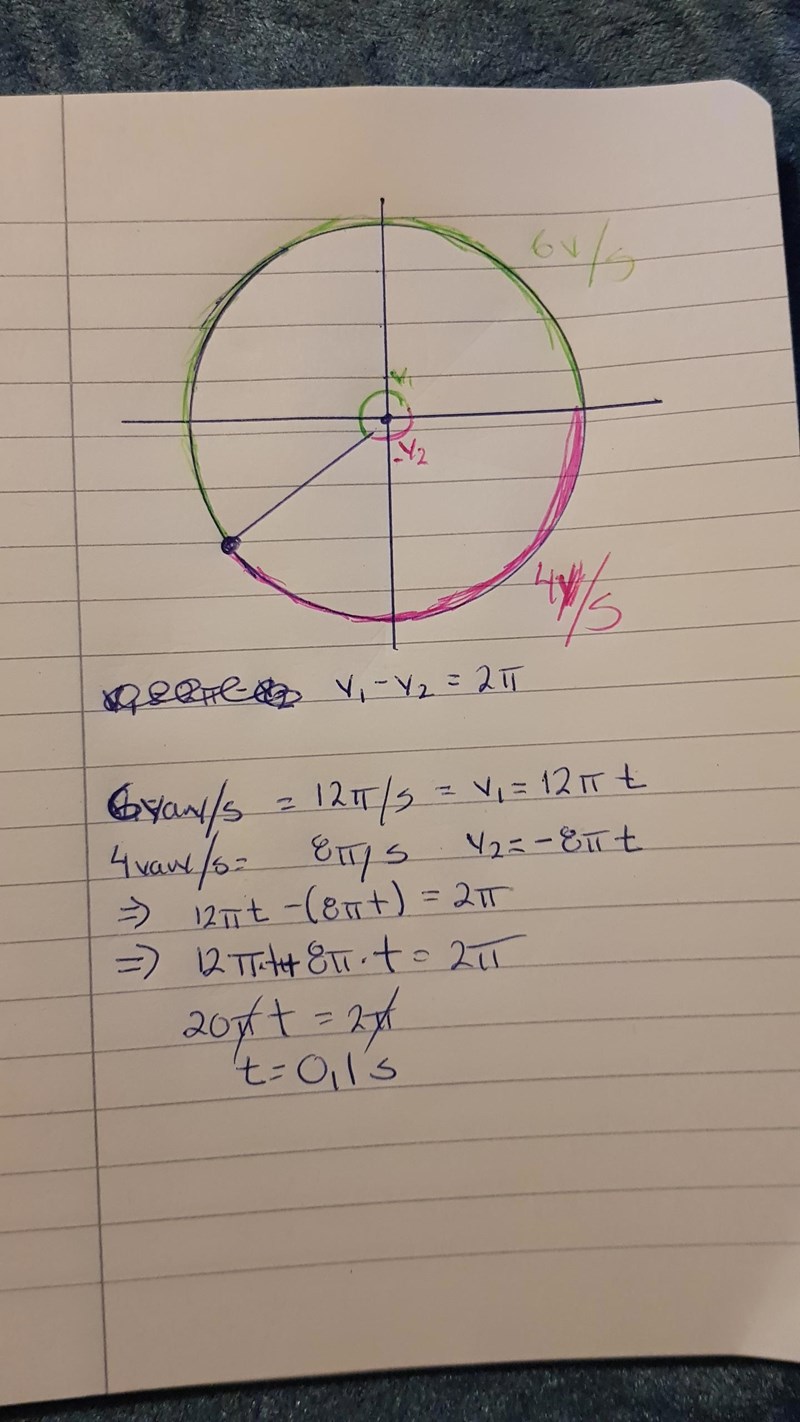 6v/s
v₁
-v₂
4v/s
v₁ - v₂ = 2π
6varv/s = 12π/s = v₁ = 12π t
4varv/s = 8π/s v₂ = -8π t
⇒ 12πt - (8πt) = 2π
⇒ 12π·t + 8π·t = 2π
20πt = 2π
t = 0,1 s